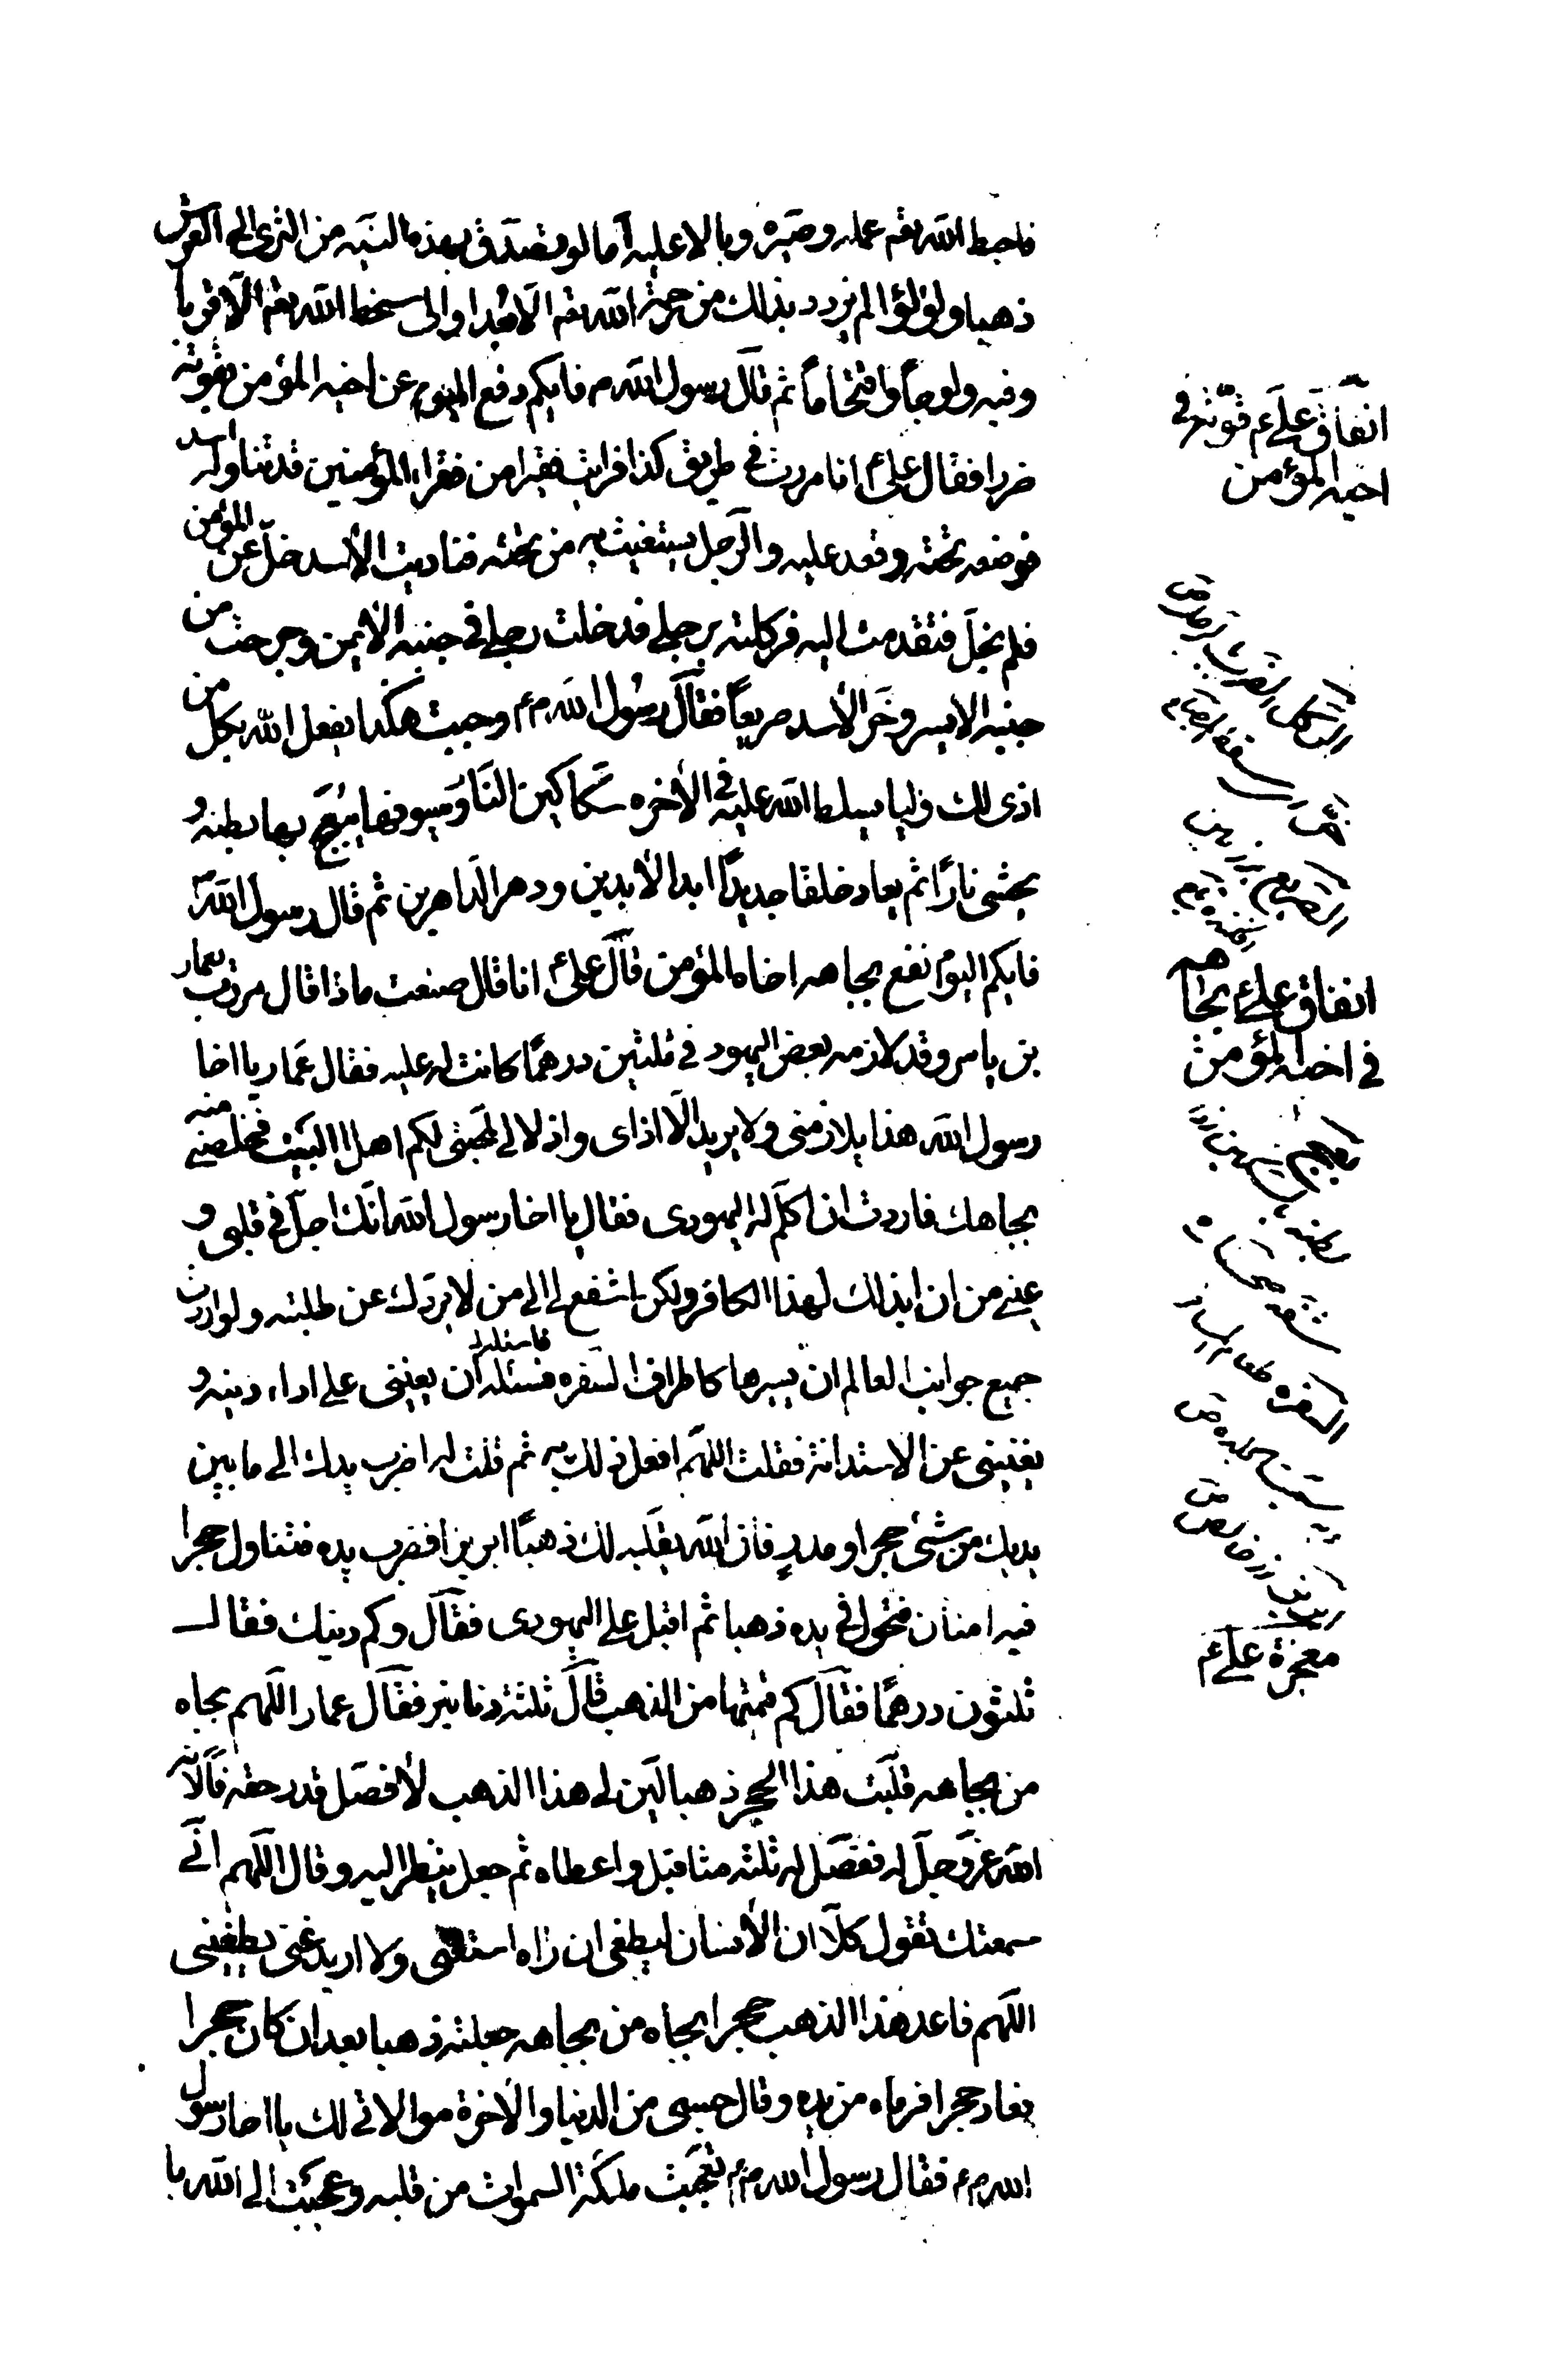 فاحبط الله تعم عمله وصيره وبالا عليه اما لو تصدق بهذه النية من الثرى الى العرش
ذهبا ولؤلؤا لم يزدد بذلك من رحمة الله تعم الا بعدا والى سخط الله تعم الا قربا
وفيه ولوجا واقتحاما ثم قال رسول الله م فايكم دفع اليوم عن اخيه المؤمن بقوته
ضررا فقال علي ع انا مررت في طريق كذا فرايت فقيرا من فقراء المؤمنين قد تناوله اسد
فوضعه تحته وقعد عليه والرجل يستغيث بي من تحته فناديت الاسد خل عن المؤمن
فلم يخل فتقدمت اليه فركلته برجلي فدخلت رجلي في جنبه الايمن وخرجت من
جنبه الايسر وخر الاسد صريعا فقال رسول الله م م وجبت هكذا يفعل الله بكل من
اذى لك وليا يسلط الله عليه في الاخره سكاكين النار وسيوفها يبعج بها بطنه و
يحشى نارا ثم يعاد خلقا جديدا ابد الابدين ودهر الداهرين ثم قال رسول الله
فايكم اليوم نفع بجاهه اخاه المؤمن قال علي ع انا قال صنعت ماذا قال مررت بعمار
بن ياسر وقد لازمه بعض اليهود في ثلثين درهما كانت له عليه فقال عمار يا اخا
رسول الله هذا يلازمني ولا يريد الا اذاى واذلالي لمحبتي لكم اهل البيت فخلصني منه
بجاهك فاردت ان اكلم له اليهودى فقال يا اخا رسول الله انك اجل في قلبي و
عيني من ان ابذلك لهذا الكافر ولكن اشفع لي الى من لا يردك عن طلبته ولو اردت
جميع جوانب العالم ان يسيرها كاطراف السفره فسئله ان يعينني على اداء دينه و
فاسئله
يغنيني عن الاستدانة فقلت اللهم افعل ذلك به ثم قلت له اضرب يدك الى ما بين
يديك من شئ حجر او مدر فان الله يقلبه لك ذهبا ابريزا فضرب يده فتناول حجرا
فيه امنان فتحول في يده ذهبا ثم اقبل على اليهودى فقال وكم دينك فقال
ثلثون درهما فقال كم قيمتها من الذهب قال ثلثة دنانير فقال عمار اللهم بجاه
من بجاهه قلبت هذا الحجر ذهبا لين لي هذا الذهب لافصل قدر حقه فالانه
الله عز وجل له ففصل له ثلثه مثاقيل واعطاه ثم جعل ينظر اليه وقال اللهم اني
سمعتك تقول كلا ان الانسان ليطغى ان راه استغنى ولا اريد غنى يطغيني
اللهم فاعد هذا الذهب حجرا بجاه من بجاهه جعلته ذهبا بعد ان كان حجرا
فعاد حجرا فرماه من يده وقال حسبي من الدنيا والاخرة موالاتي لك يا اخا رسول
الله م م فقال رسول الله م م تعجبت ملئكة السموات من قلبه وعجبت الى الله با
انفاق علي ع قوته في
اخيه المؤمن
انفاق علي ع بجاهه
في اخيه المؤمن
معجزة علي ع